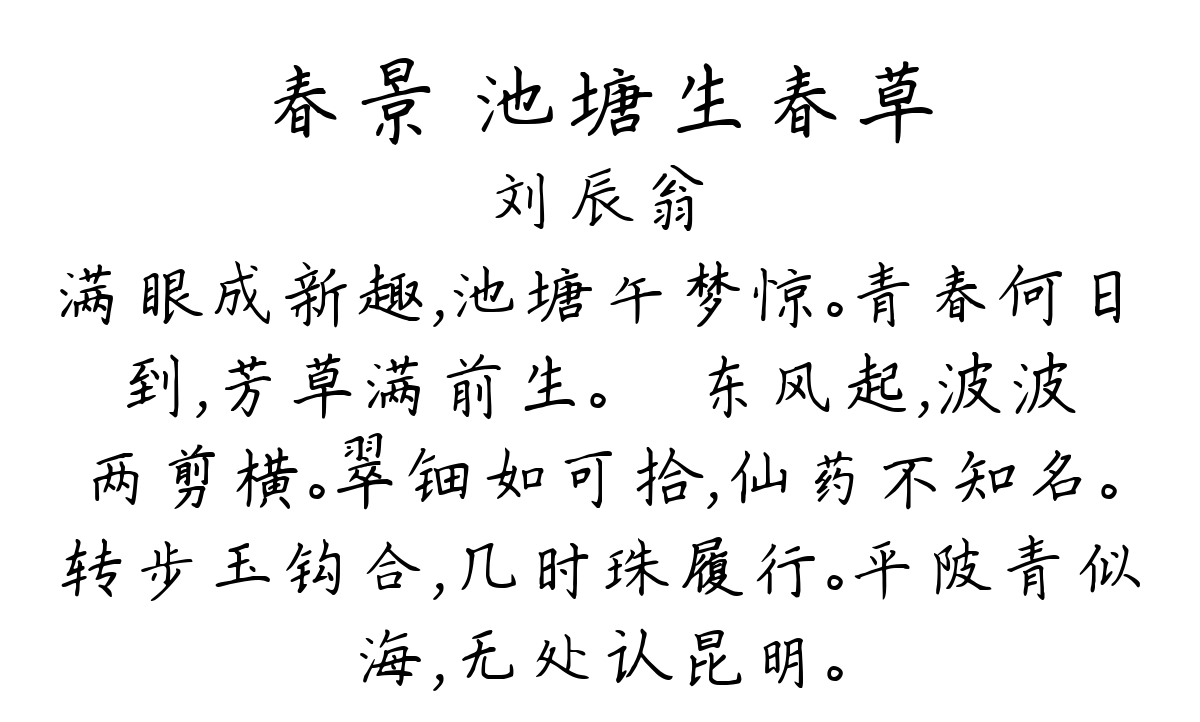 春景 池塘生春草
刘辰翁
满眼成新趣,池塘午梦惊。青春何日
到,芳草满前生。 东风起,波波
两剪横。翠钿如可拾,仙药不知名。
转步玉钩合,几时珠履行。平陂青似
海,无处认昆明。